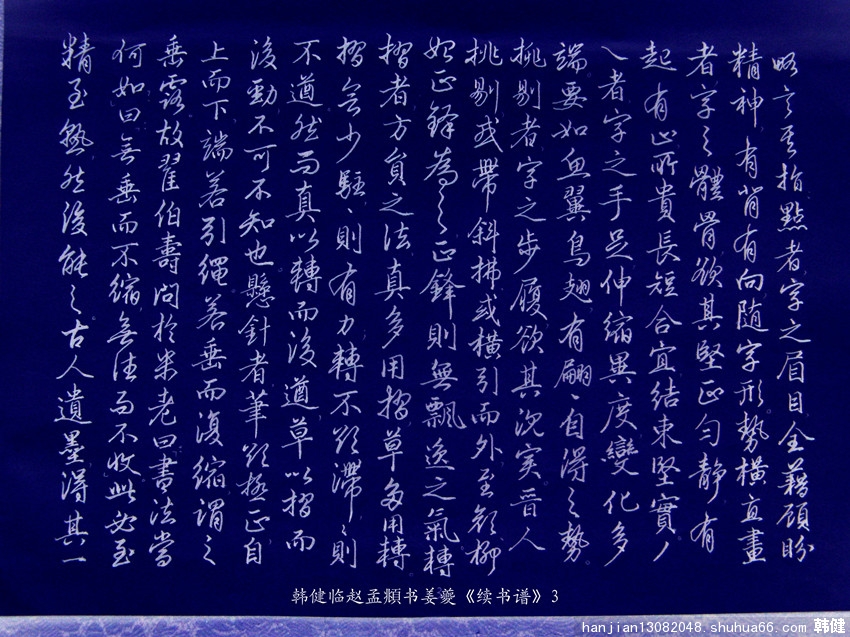 略言其指點者字之眉目全藉顧盼
精神有背有向隨字形勢橫直畫
者字之體骨欲其堅正勻靜有
起有止所貴長短合宜結束堅實丿
乀者字之手足伸縮異度變化多
端要如魚翼鳥翅有翩丶自得之勢
挑剔者字之步履欲其沉實晉人
挑剔或帶斜拂或橫引而外至顏柳
始正鋒為之正鋒則無飄逸之氣轉
摺者方員之法真多用摺草多用轉
摺欲少駐丶則有力轉不欲滯丶則
不遒然而真以轉而後遒草以摺而
後勁不可不知也懸針者筆欲極正自
上而下端若引繩若垂而復縮謂之
垂露故翟伯壽問於米老曰書法當
何如曰無垂而不縮無往而不收此必至
精至熟然後能之古人遺墨得其一
韩健临赵孟頫书姜夔《续书谱》3
hanjian13082048.shuhua66.com 韩健